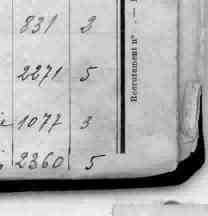 831 3
2271 5
1077 3
2360 5
Recrutement n° . —